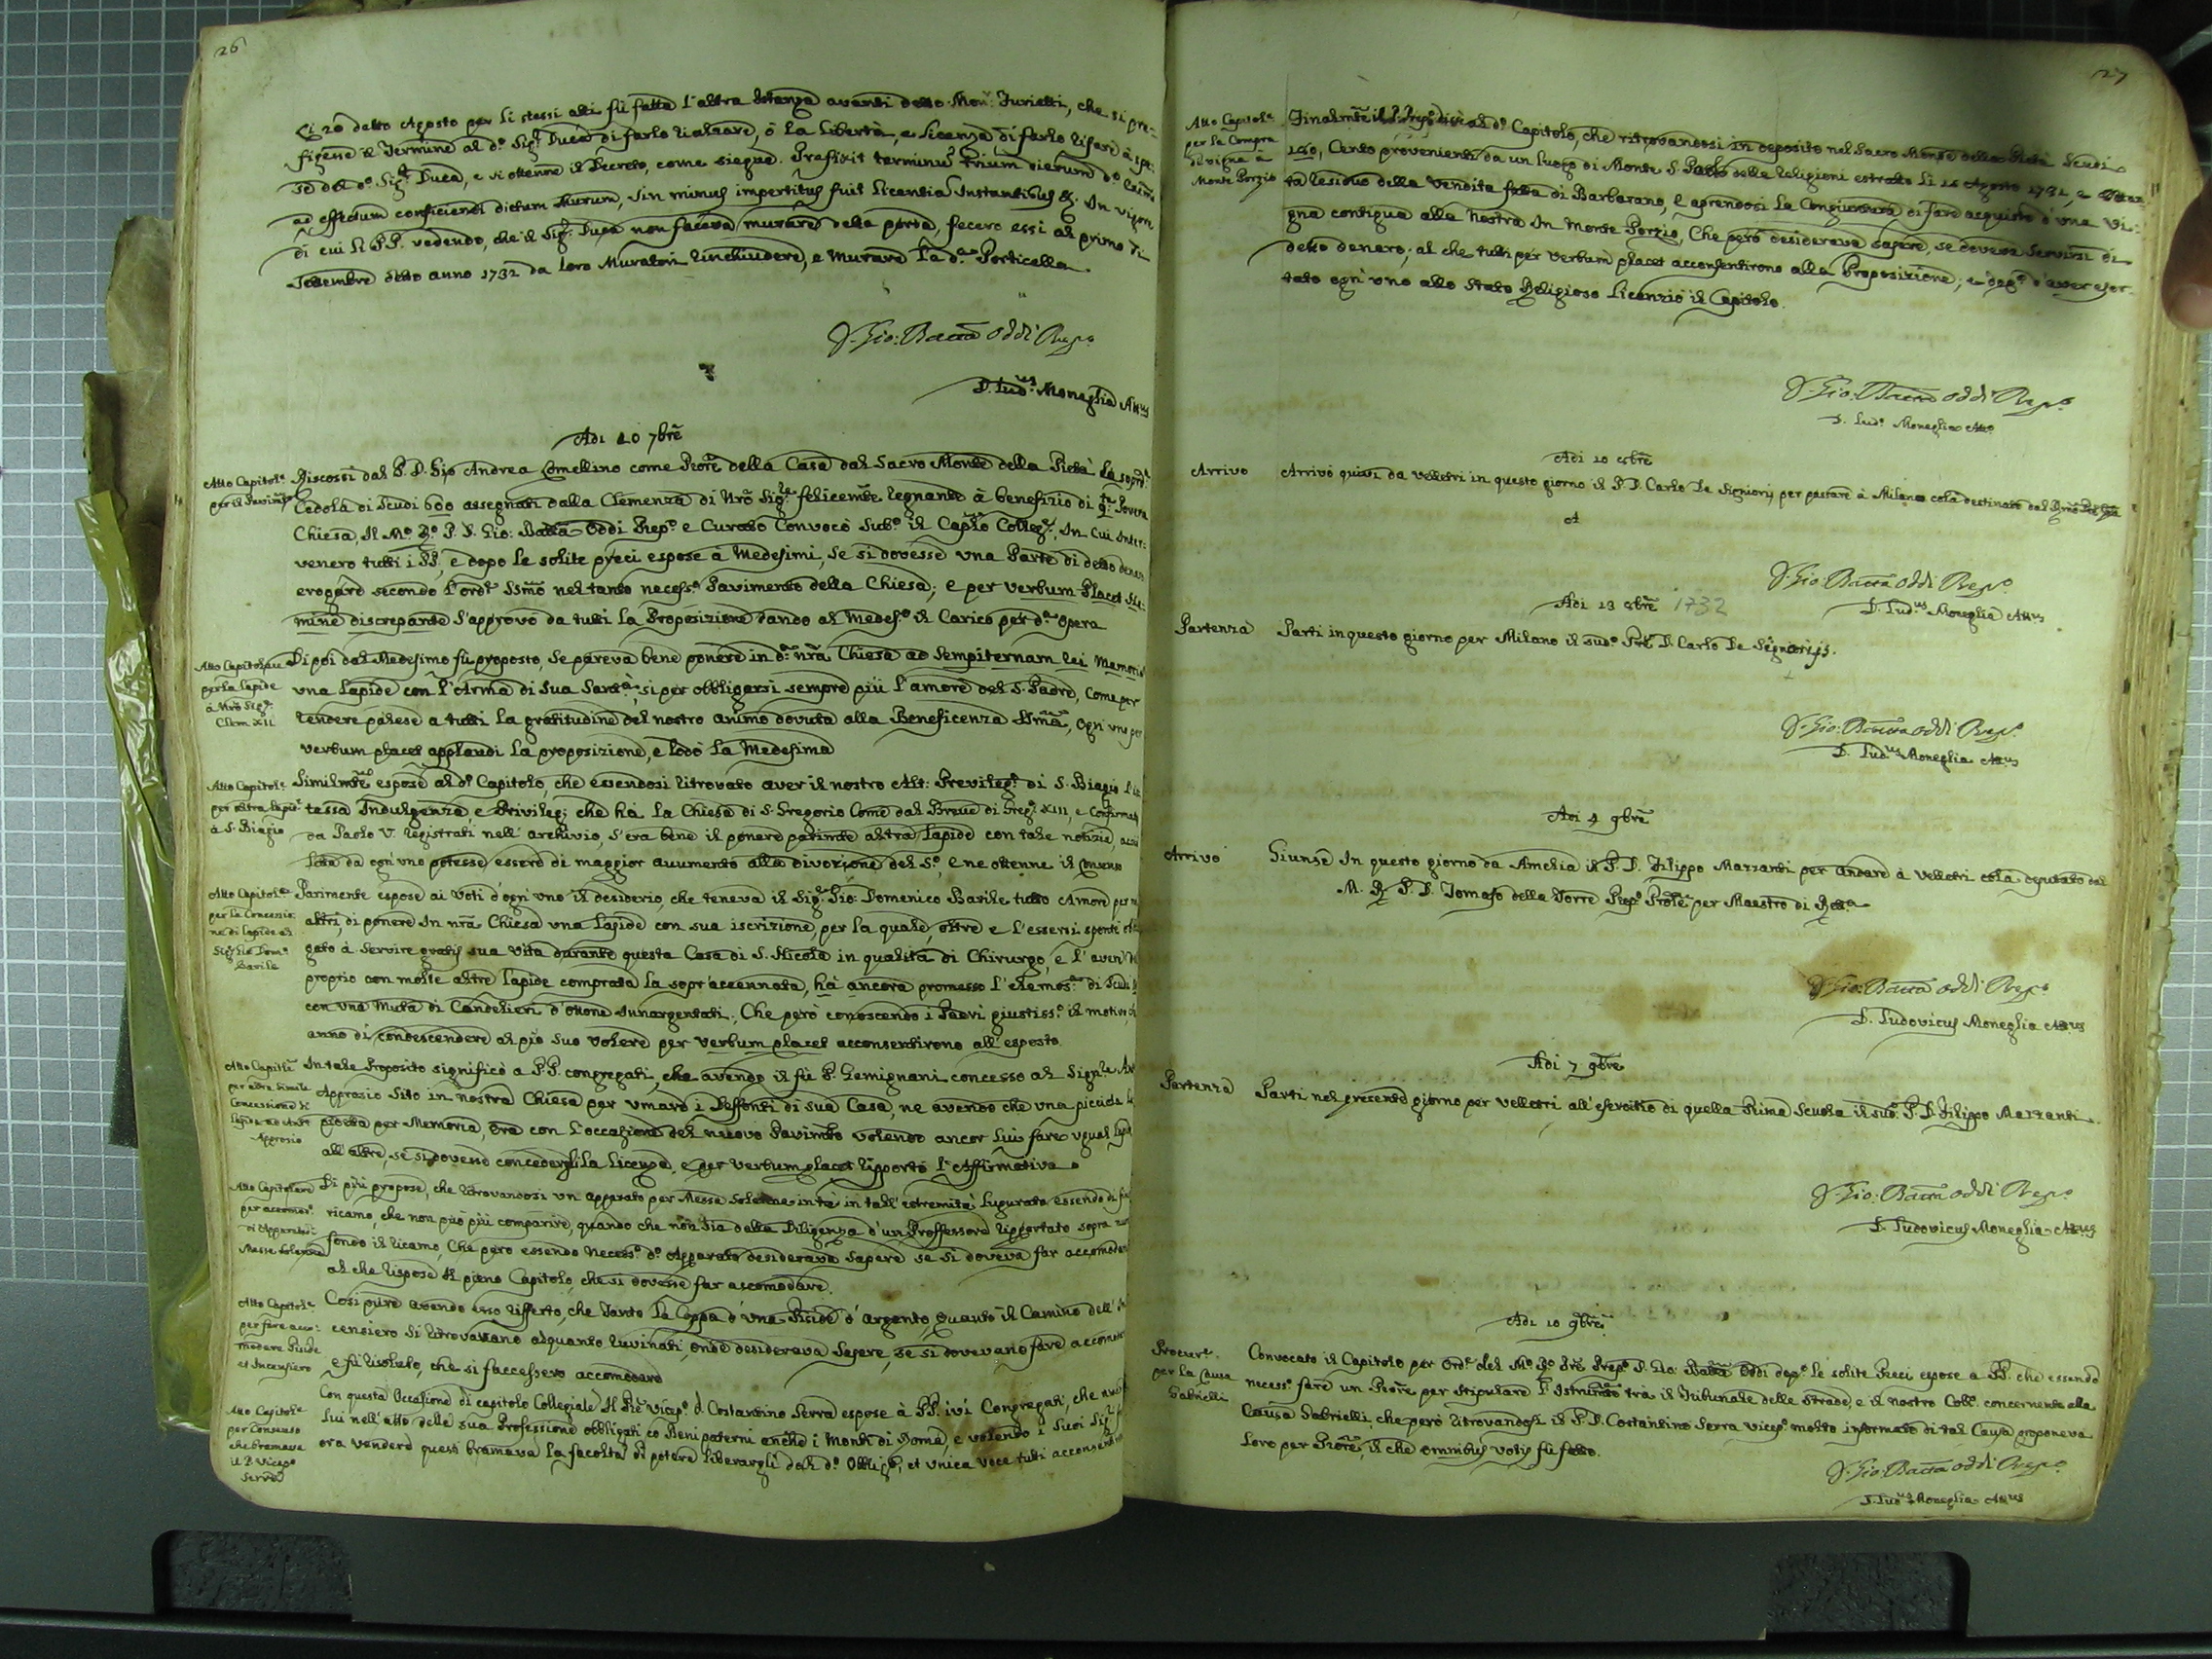 26
Li 20 detto Agosto per li stessi atti fù fatta l'altra Istanza avanti detto Mon.r Furietti, che si pre-
figesse il Termine al d.o Sig.r Duca di farlo rialzare, ò la libertà, e licenza di farlo rifare à spe:
se del d.o Sig.r Duca, e si ottenne il Decreto, come siegue. Prefixit terminũ trium dierum d.o
ad effectum conficiendi dictum Murum, sin minus impertitus fuit licentiã Instantibus &. In vigor
di cui li PP. vedendo, che il Sig.r Duca non faceva murare della porta, fecero essi al primo di
Settembre detto anno 1732 da loro Muratori rinchiudere, e murare la d.a Porticella.
D. Gio: Batta Oddi Prep.o
D. Lud.us Moneglia Att.us
Adi 10 7brẽ
Atto Capitol.e
per il Pavim.to
Riscossi dal P. D. Gio Andrea Comellino come Procre della Casa dal Sacro Monte della Pietà la soprd.a
Cedola di Scudi 600 assegnati dalla Clemenza di Nro Sig.re felicemte regnante à benefizio di q.ta Povera
Chiesa, Il M.o R.o P. D. Gio: Batta Oddi Prep.o e Curato Convocò Sub.o il Caplo Colleg.e, In cui inter:
venero tutti i PP, e dopo le solite preci espose a Medesimi, se si dovesse una Parte di detto denar
erogare secondo l'ord.e Ssmo nel tanto necess.o Pavimento della Chiesa; e per verbum Placet ne:
mine discrepante s'approvò da tutti la Proposizione dando al Medes.o il Carico per d.a opera
Atto Capitolare
per la lapide
à Nro Sig.re
Clem XII
Di poi dal Medesimo fù proposto, se pareva bene ponere in d.a nrã Chiesa ad Sempiternam rei Memoriã
una Lapide con l'Arma di Sua Santà, si per obbligarsi sempre più l'amore del S. Padre, Come per
rendere palese a tutti la gratitudine del nostro animo dovuta alla Beneficenza Ssmã, Ogn'uno per
verbum placet applaudi la proposizione, e lodò la Medesima
Atto Capitol.e
per altra lapid.e
à S. Biagio
Similmte espose al d.o Capitolo, che essendosi ritrovato aver il nostro Alt: Previleg.o di S. Biagio l'is
tessa Indulgenza, e Privileg; che hà la Chiesa di S. Gregorio Come dal Breve di Greg.o XIII, e Confirmati
da Paolo V. registrati nell'archivio, s'era bene il ponere parimte altra lapide con tale notizia, acciò
letta da ogn'uno potesse essere di maggior aumento alla divozione del S.o, e ne ottenne il Consenso
Atto Capitol.e
per la Concessio:
ne di lapide al
Sig. Gio Dom.o
Barile
Parimente espose ai Voti d'ogn'uno il desiderio, che teneva il Sig.r Gio: Domenico Barile tutto Amore per
altri, di ponere In nrã Chiesa una Lapide con sua iscrizione, per la quale, oltre e l'essersi sponte obli
gato à servire gratis sua vita durante questa Casa di S. Nicola in qualità di Chirurgo, e l'aver
proprio con molte altre lapide comprata la sopr'accennata, hà ancora promesso l'elemos.a di Scudi
con una Muta di Candelieri d'ottone Inargentati; Che però conoscendo i Padri giustiss.o il motivo
anno di condescendere al pio suo volere per verbum placet acconsentirono all'esposto.
Atto Capitle
per altra simile
Concessione di
lapide ad Ant.o
Approsio
In tale Proposito significò a PP. congregati, che avendo il fù P. Gemignani concesso al Sig.re Ant
Approsio Sito in nostra Chiesa per umare i Deffonti di sua Casa, ne avendo che una picciola la
pidetta per Memoria, ora con l'occasione del nuovo Pavimto volendo ancor lui fare ugual lapide
all'altre, se si dovesse concedergli la licenza, e per verbum placet riportò l'Affirmativa.
Atto Capitolare
per accomod.e
di Apparato:
Messe Solenni
Di più propose, che ritrovandosi un apparato per Messe Solenne in tà in tall'estremità lugurata essendo di fu
ricamo, che non può più comparire, quando che non sia dalla Diligenza d'un Proffessore riportato sopra
fondo il ricamo, Che però essendo necess.o d.o Apparato desiderava sapere se si doveva far accomodare
al che rispose il pieno Capitolo, che si dovesse far accomodare.
Atto Capitol.e
per fare acco:
modare Piside
et Incensiero
Così pure avendo esso rifferto, che tanto la Coppa d'una Piside d'argento, Quanto il Camino dell'In
censiero si ritrovavano alquanto ruvinati, onde desiderava sapere, se si dovevano fare accomodare
e fù risoluto, che si faccessero accomodare
Atto Capitol.e
per Consenso
che bramava
il P. Vicep.o
Serra
Con questa Occasione di capitolo Collegiale Il Pre Vicep.o d Costantino Serra espose à PP. ivi Congregati, che avend
lui nell'atto della sua Professione obbligati co Beni paterni anche i Monti di Roma, e volendo i Suoi Sig.ri
ora vendere questi bramava la facoltà di potere liberargli dal d.o Obblig.o, et unica voce tutti acconsentirono
27
Atto Capitol.e
per la Compra
di vigna a
Monte Porzio
Finalmte il P. Prep.o disse al d.o Capitolo, che ritrovandosi in deposito nel Sacro Monte della Pietà Scudi
150, Cento provenienti da un luogo di Monte S. Paolo delle Religioni estratto li 16 Agosto 1732, e
ta residuo della vendita fatta di Barbarano, e aprendosi la Congiuntura di fare acquisto d'una Vi:
gna contigua alla Nostra In Monte Porzio, Che però desiderava sapere, se doveva servirsi di
detto denaro; al che tutti per verbum placet acconsentirono alla Proposizione; e dop.o d'aver esor
tato ogn'uno allo Stato Religioso licenziò il Capitolo.
D. Gio: Batta Oddi Prep.o
D. Lud.s Moneglia Att.s
Adi 10 8brẽ
Arrivo
Arrivò quivi da Velletri in questo giorno il P. D. Carlo De Signorij per passare à Milano colà destinato dal
D. Gio Batta Oddi Prep.o
D. Lud.us Moneglia Att.us
Adi 13 8brẽ 1732
Partenza
Parti in questo giorno per Milano il sud.o Pre D. Carlo De Signorijs.
D. Gio: Batta Oddi Prep.o
D. Lud.us Moneglia Att.us
Adi 4 9brẽ
Arrivo
Giunse In questo giorno da Amelia il P. D. Filippo Marzanti per andare à Velletri colà deputato dal
M. R. P. D. Tomaso della Torre Prep.o Prole per Maestro di Rett.a
D. Gio: Batta Oddi Prep.o
D. Ludovicus Moneglia Att.us
Adi 7 9brẽ
Partenza
Parti nel presente giorno per Velletri all'esercitio di quella Prima Scuola il sud.o P. D. Filippo Marzanti.
D. Gio: Batta Oddi Prep.o
D. Ludovicus Moneglia Att.us
Adi 10 9brẽ
Procur.e
per la Causa
Gabrielli
Convocato il Capitolo per Ord.e del M.o R.o Pre Prep.o D. Gio: Batta Oddi dop.o le solite Preci espose a PP. che essendo
necess.o fare un Procre per stipulare l'Istrumto trà il Tribunale delle Strade, e il nostro Coll.o concernente alla
Causa Gabrielli, che però ritrovandosi il P. D. Costantino Serra Vicep.o molto informato di tal Causa proponeva
loro per Procre, il che omnibus votis fù fatto.
D. Gio: Batta Oddi Prep.o
D. Lud.us Moneglia Att.us